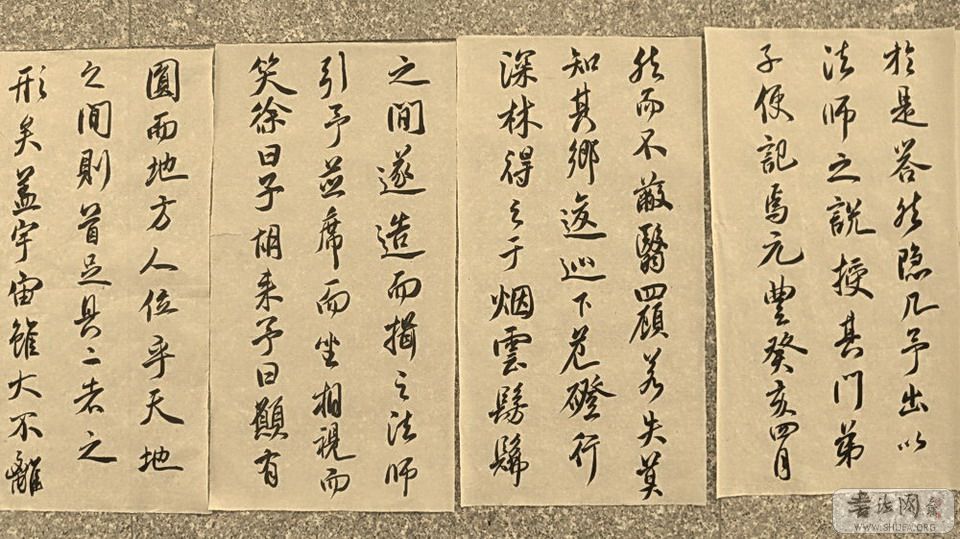 於是荅然隐几予出以
法師之說授其門弟
子便記焉元豐癸亥四月
然而不蔽翳四顧若失莫
知其鄉逡巡下危磴行
深林得之于烟雲髣髴
之間遂造而揖之法師
引予並席而坐相視而
笑徐曰子胡来予曰願有
圓而地方人位乎天地
之間則首足具二者之
形矣盖宇宙雖大不離
書法网
WWW.SHUFA.ORG